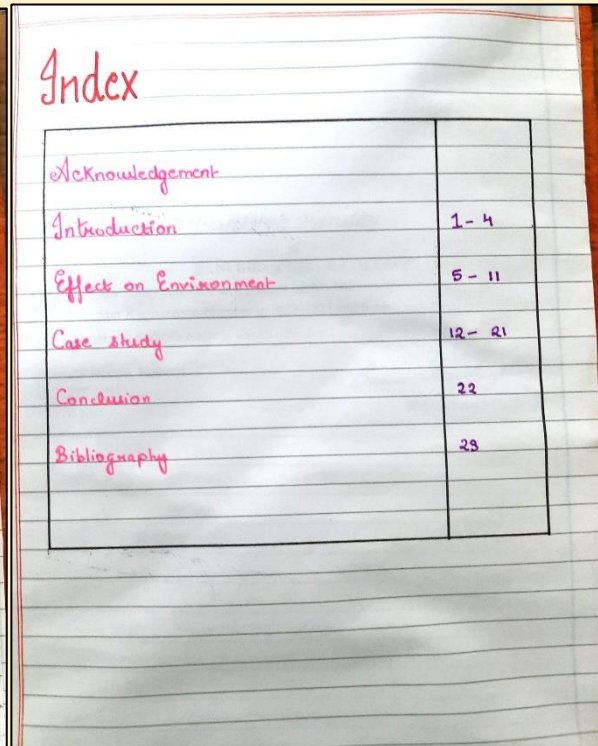 Index
Acknowledgement
Introduction 1 - 4
Effect on Environment 5 - 11
Case study 12 - 21
Conclusion 22
Bibliography 23